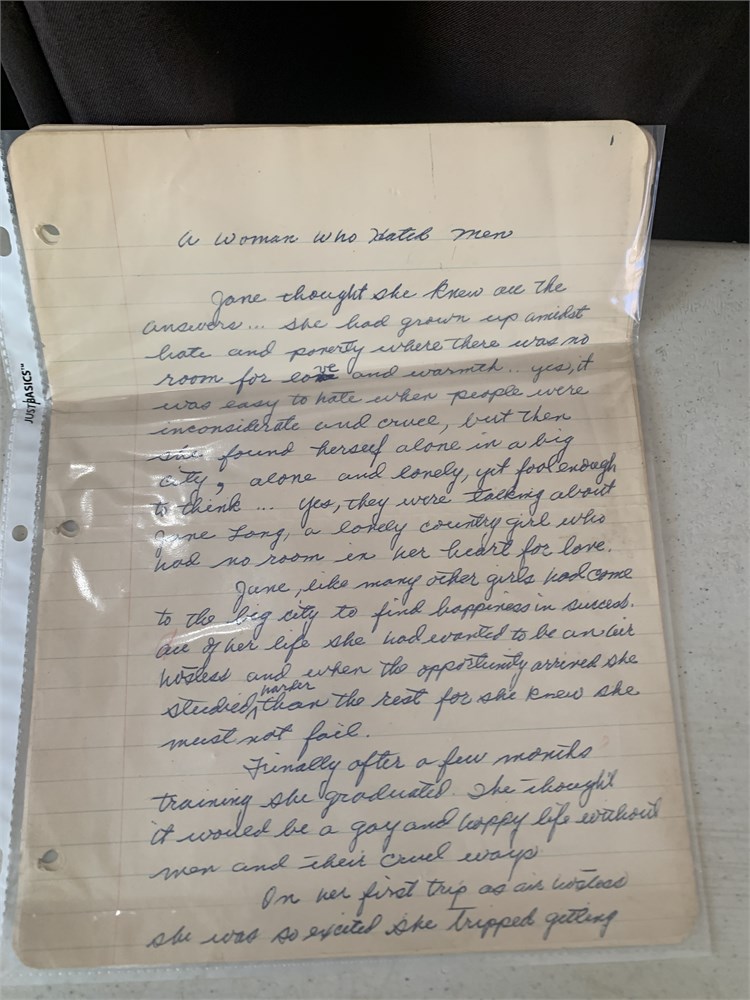 1
A Woman Who Hated Men
Jane thought she knew all the
answers... she had grown up amidst
hate and poverty where there was no
room for love and warmth... yes, it
was easy to hate when people were
inconsiderate and cruel, but then
she found herself alone in a big
city, alone and lonely, yet fool enough
to think... yes, they were talking about
Jane Long, a lonely country girl who
had no room in her heart for love.
Jane, like many other girls had come
to the big city to find happiness in success.
All of her life she had wanted to be an air
hostess and when the opportunity arrived she
studied harder than the rest for she knew she
must not fail.
Finally after a few months
training she graduated. She thought
it would be a gay and happy life without
men and their cruel ways.
On her first trip as air hostess
she was so excited she tripped getting
JUST BASICS™